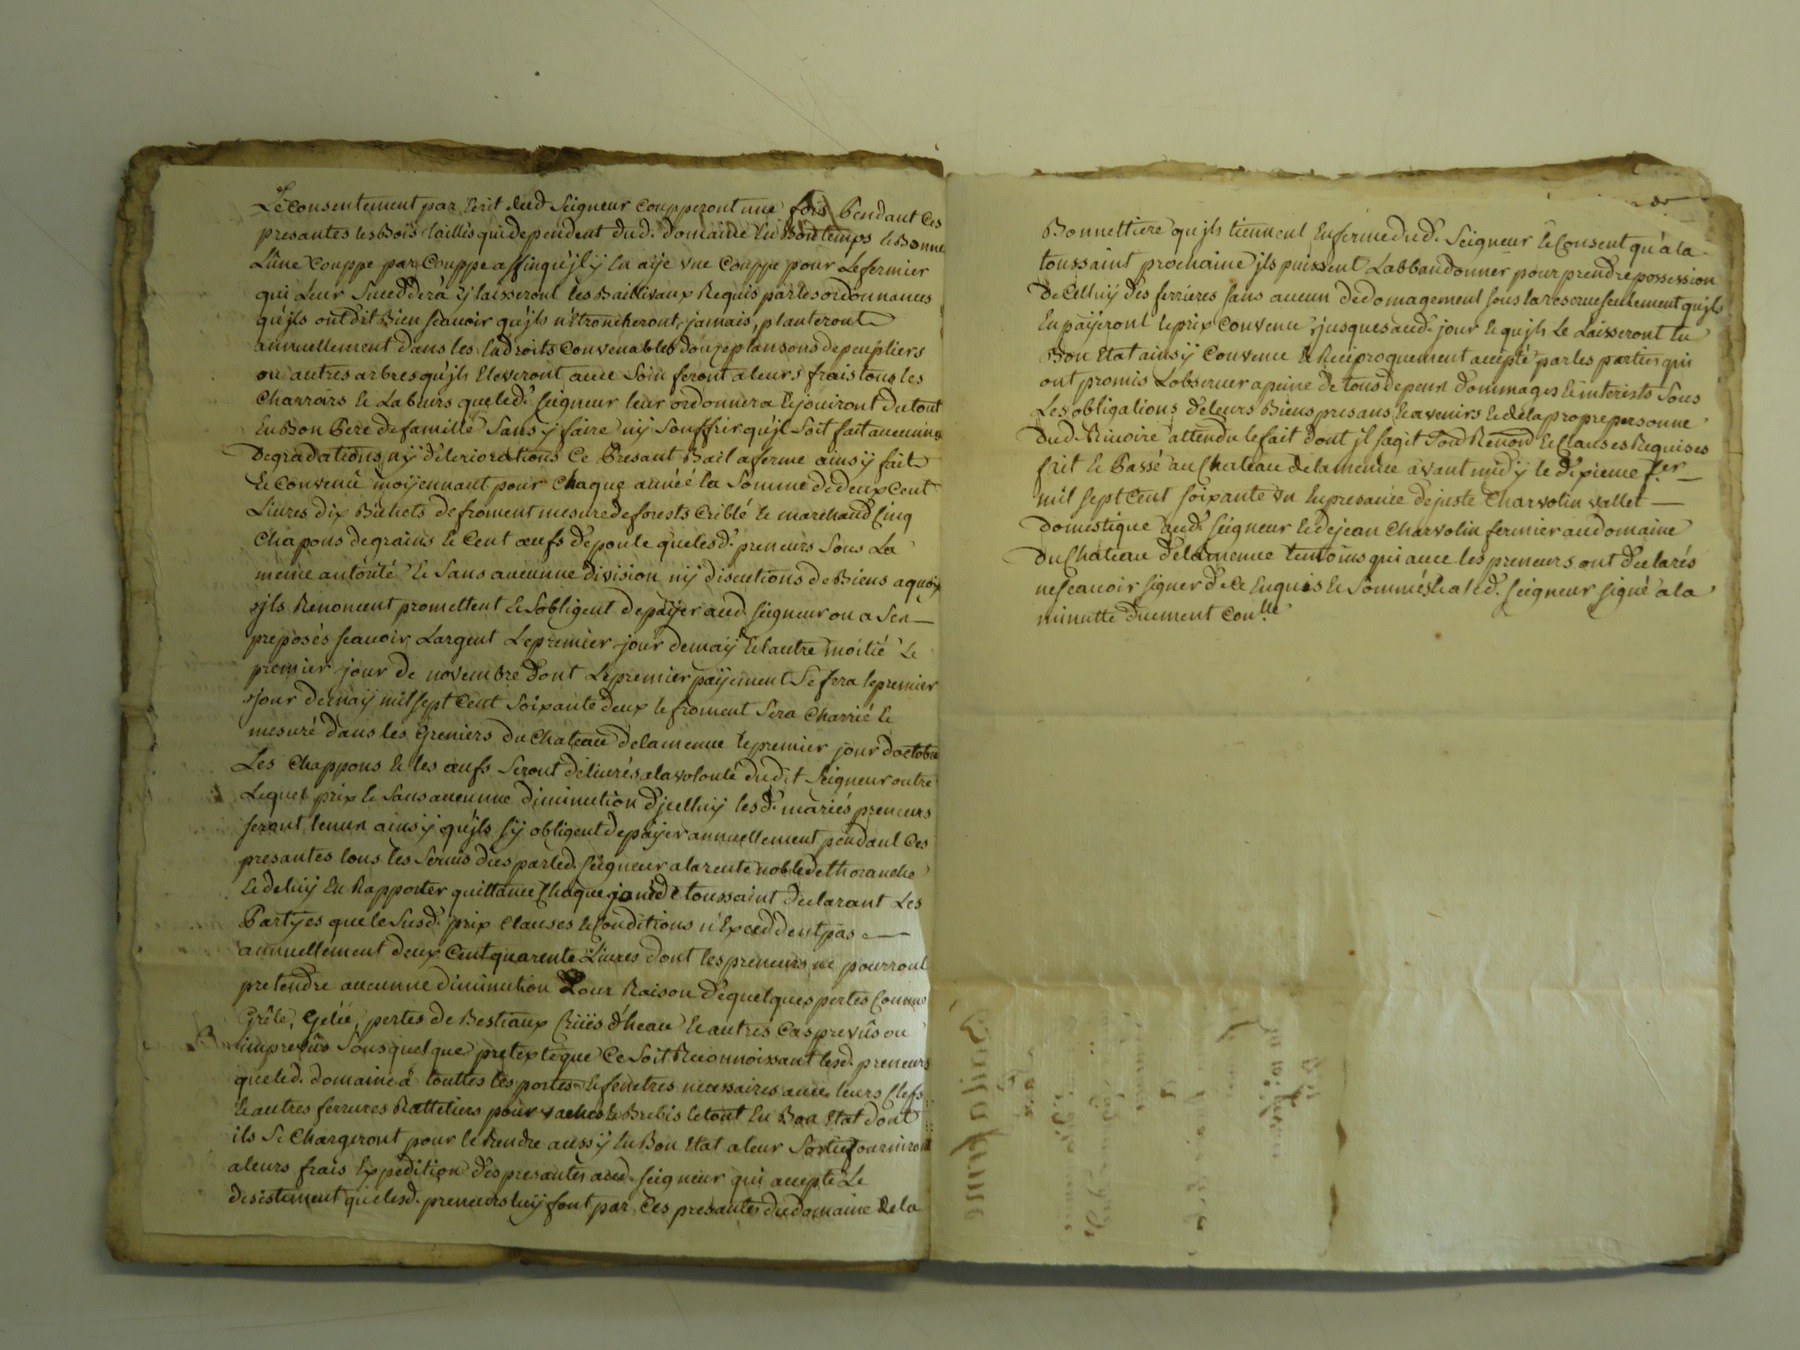 Le consentement par Ecrit dud. Seigneur Coupperont une fois pendant Ces
presantes les Bois taillis qui dependent dud. domaine En Bon temps & Bonne
Lûne Couppe par Couppe affin qu'jl ÿ En aÿe une Couppe pour Le fermier
qui Leur Succeddera Ey laisseront les Baillivaux Requis par les ordonnances
qu'jls ont dit Bien scauoir qu'jls n'Etroncheront jamais, planteront
annuellement dans les Endroits Convenables douze plansons de peupliers
ou autres arbres qu'jls Eleveront avec Soin feront a leurs frais tous les
Charrois & Labeurs que led. Seigneur leur ordonnera & joüiront du tout
En Bon Pere de famille Sans ÿ faire nÿ Souffrir qu'jl Soit fait aucunne
Degradations nÿ déteriorations Ce Presant Bail a ferme ainsÿ fait
& Convenu moÿennant pour Chaque année la Somme de deux Cent
Livres dix Bichets de froment mesure de forests Criblé & marchand Cinq
Chapons de grains & Cent œufs de poule que lesd. preneurs Sous La
meme autorité & Sans aucunne division nÿ discutions de Biens a quoÿ
jls Renoncent promettent & S'obligent de paÿer aud. Seigneur ou a Ses
preposés scauoir Largent Le premier jour de maÿ & Lautre moitié Le
premier jour de novembre dont Le premier paÿement Se fera le premier
jour de maÿ mil sept Cent Soixante deux le froment Sera Charrié &
mesuré dans les Greniers du Chateau de la menue le premier jour doctobre
Les Chappons & les œufs Seront délivrés a la volonté dudit Seigneur outre
Lequel prix & Sans aucunne diminution d'jcelluÿ les d. mariés preneurs
Seront tenus ainsÿ qu'jls s'y obligent de paÿer annuellement pendant Ces
presantes tous les Servis dus par led. Seigneur a la rente noble de thoranche
& de luÿ En Rapporter quittance Chaque jour de toussaint declarant Les
Partyes que le Susd. prix Clauses & Conditions n'Exceddent pas
annuellement deux Cent quarente Livres dont les preneurs ne pourront
pretendre aucunne diminution Pour Raison de quelques pertes Comme
Grêle, Gelée, pertes de Bestiaux Crües d'heau & autres Cas prevûs ou
imprevûs Sous quelque pretexte que Ce Soit Reconnoissant lesd. preneurs
que led. domaine a touttes les portes & fenetres necessaires avec leurs Clefs
& autres ferrures Rattetiers pour vaches & Brebis le tout En Bon Etat dont
ils Se Chargeront pour le Rendre aussÿ En Bon Etat a leur Sortie fourniront
a leurs frais Expedition des presantes aud. Seigneur qui accepte Le
desistement que lesd. preneurs luÿ font par Ces presantes du domaine de la
Bonnettiere qu'jls tiennent En ferme dud. Seigneur & Consent qu'a la
toussaint prochaine jls puissent L'abbandonner pour prendre possession
de Celluÿ des ferrieres sans aucun dedomagement sous la reserve seulement qu'jls
En paÿeront le prix Convenu jusques aud. jour & qu'jls Le Laisseront En
Bon Etat ainsÿ Convenu & Reciproquement accepté par les parties qui
ont promis L'observer a peine de tous depens dommages & interests Sous
Les obligations de leurs Biens presans & avenirs & de la propre personne
dud. attendu le fait dont jl sagit Sous Renon. & Clauses Requises
fait & Passé au Chateau de la menue avant midÿ le dixieme
mil sept Cent soixante un En presance de juste Charvolin vallet
domestique aud. Seigneur & de jean Charvolin fermier au domaine
du Chateau de la menue temoins qui avec les preneurs ont declarés
ne scauoir signer de Ce Enquis & Sommés & a led. Seigneur signé a la
minutte duement Con.llé